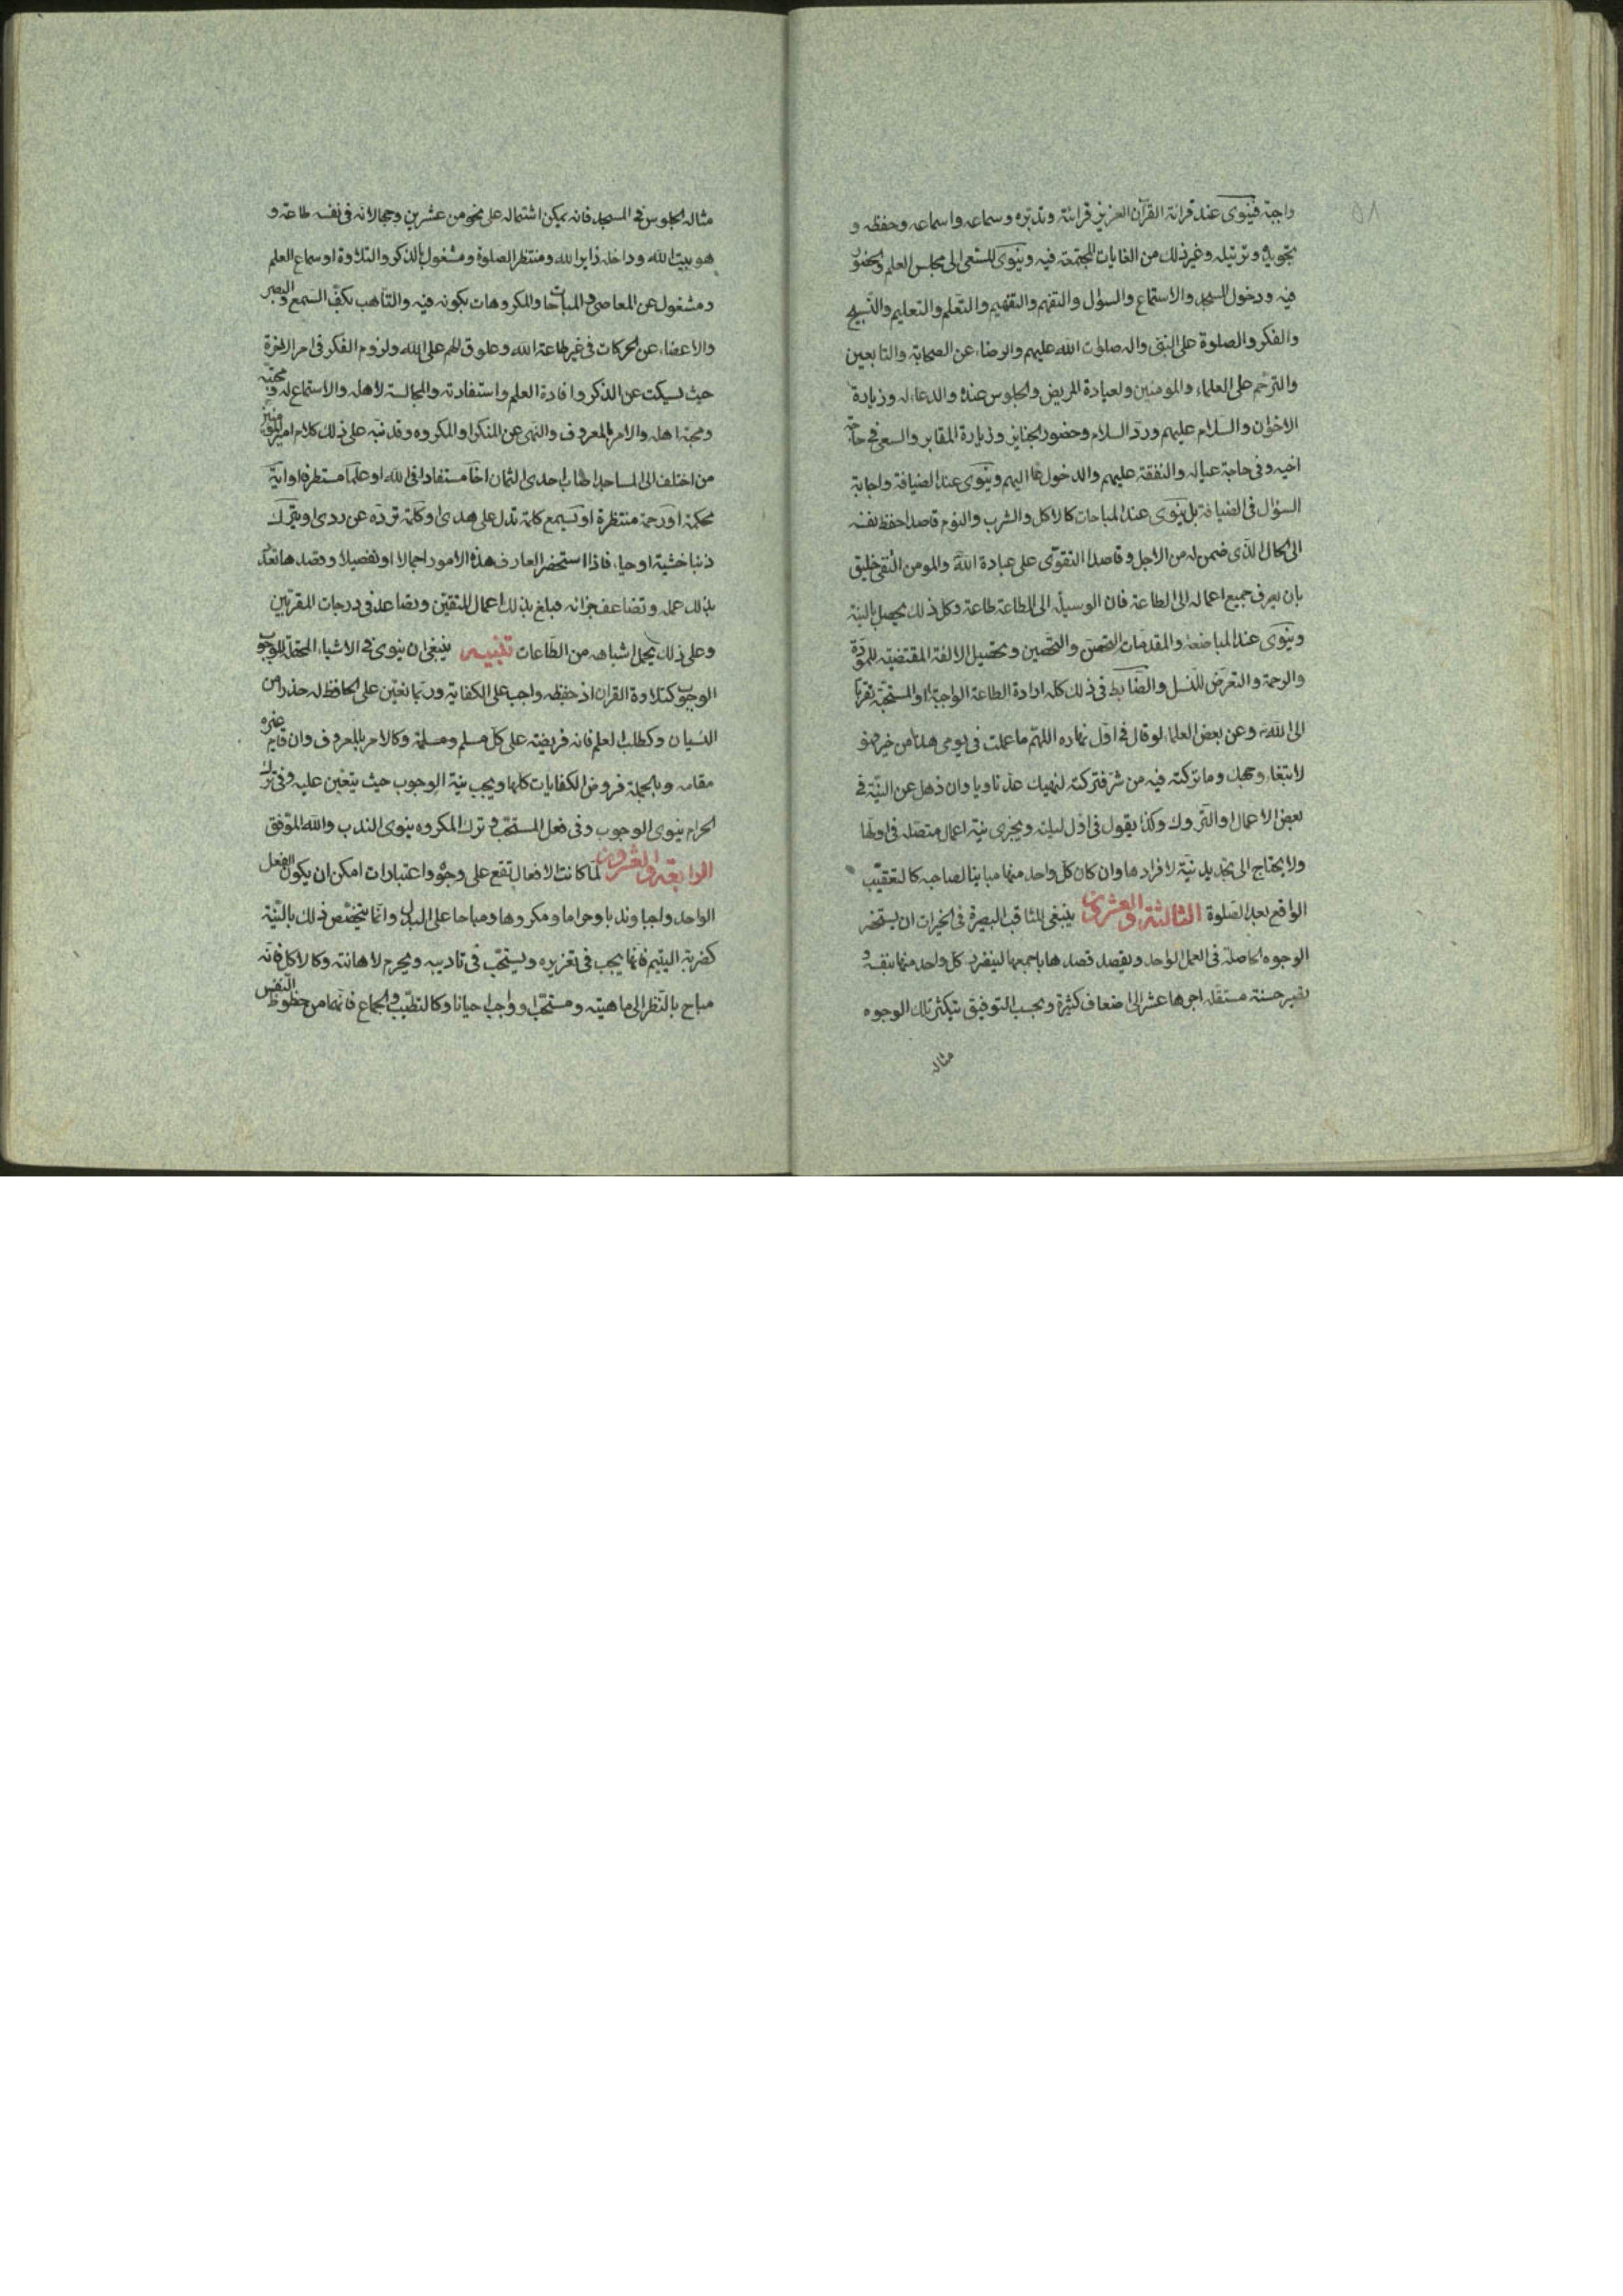 ٥٨
واجبة فينوى عند قرائة القرآن العزيز قرائته وتدبّره وسماعه واسماعه وحفظه و
تجويده وترتيله وغير ذلك من الغايات المجتمعة فيه وينوى للسّعى الى مجلس العلم والحضور
فيه ودخول المسجد والاستماع والسؤال والتفهم والتفهيم والتّعلّم والتعليم والتّسبيح
والفكر والصلوة على النبىّ واله صلوات الله عليهم والرضاء عن الصحابة والتابعين
والترحّم على العلماء والمومنين ولعيادة المريض والجلوس عنده والدعاء له وزيارة
الاخوان والسّلام عليهم وردّ السلام وحضور الجنايز وزيارة المقابر والسعى فى حاجة
اخيه وفى حاجة عياله والنفقة عليهم والدخول اليهم وينوى عند الضيافة واجابة
السؤال فى الضيافة بل ينوى عند المباحات كالاكل والشرب والنوم قاصدا حفظ نفسه
الى الحال الذى ضمن له من الاجل وقاصدا التقوّى على عبادة الله والمومن التقى خليق
بان يصرف جميع اعماله الى الطاعة فان الوسيلة الى الطاعة طاعة وكل ذلك يحصل بالنية
وينوى عند المباضعة والمقدمات التحصّن والتحصين وتحصيل الالفة المقتضية للمودّة
والرحمة والتعرّض للنسل والضّابط فى ذلك كلّه ارادة الطاعة الواجبة او المستحبّة تقربا
الى الله وعن بعض العلماء لو قال فى اوّل نهاره اللهمّ ما عملت فى يومى هذا من خير فهو
لابتغاء وجهك وما تركته فيه من شرّ فتركته لنهيك عدّ ناويا وان ذهل عن النيّة فى
بعض الاعمال او التّروك وكذا يقول فى اوّل ليلته ويجزى نية اعمال متصله فى اولها
ولا يحتاج الى تجديد نيّة لافرادها وان كان كلّ واحد منها مباينا لصاحبه كالتعقيب
الواقع بعد الصّلوة الثالثة والعشرون ينبغى للثاقب البصيرة فى الخيرات ان يستحضر
الوجوه الحاصلة فى العمل الواحد ويقصد قصدها باجمعها لينفرد كلّ واحد منها بنفسه و
يصير حسنة مستقلّه اجرها عشر الى اضعاف كثيرة وبحسب التوفيق يتكثر تلك الوجوه
مثاله
مثاله الجلوس فى المسجد فانه يمكن اشتماله على نحو من عشرين وجها لانّه فى نفسه طاعة و
هو بيت الله وداخله زاير الله ومنتظر الصلوة ومشغول بالذكر والتلاوة او سماع العلم
ومشغول عن المعاصى والمباحات والمكروهات بكونه فيه والتاهب بكفّ السّمع والبصر
والاعضاء عن الحركات فى غير طاعة الله وعلوق الهم على الله ولزوم الفكر فى امر الاخرة
حيث يسكت عن الذكر وافادة العلم واستفادته والمجالسة لاهله والاستماع له ومحبّته
ومحبّة اهله والامر بالمعروف والنهى عن المنكر او المكروه وقد نبّه على ذلك كلام امير المؤمنين
من اختلف الى المساجد اصاب احدى الثمان اخا مستفادا فى الله او علما مستطرفا او آية
محكمة او رحمة منتظرة او يسمع كلمة تدل على هدى او كلمة تردّه عن ردى او يترك
ذنبا خشية او حياء فاذا استحضر العارف هذه الامور اجمالا او تفصيلا وقصدها تعدّد
بذلك عمله وتضاعف جزائه فبلغ بذلك اعمال المتقين وتصاعد فى درجات المقرّبين
وعلى ذلك يحمل اشباهه من الطّاعات تنبيه ينبغى ان ينوى فى الاشياء المحتملة للوجوب
الوجوب كتلاوة القران اذ حفظه واجب على الكفاية وربّما تعيّن على الحافظ له حذرا من
النسيان وكطلب العلم فانه فريضة على كلّ مسلم ومسلمة وكالامر بالمعروف وان قام غيره
مقامه وبالجملة فروض الكفايات كلها ويجب نية الوجوب حيث يتعيّن عليه وفى ترك
الحرام ينوى الوجوب وفى فعل المستحب وترك المكروه ينوى الندب والله الموّفق
الرابعة والعشرون لمّا كانت الافعال تقع على وجوه واعتبارات امكن ان يكون الفعل
الواحد واجبا وندبا وحراما ومكروها ومباحا على البدل وانّما يتخصّص ذلك بالنّية
كضربة اليتيم فانّها يجب فى تعزيره ويستحبّ فى تاديبه ويحرم لاهانته وكالاكل فانّه
مباح بالنّظر الى ماهيته ومستحبّ وواجب احيانا وكالتطيّب والجماع فانّهما من حظوظ النّفس